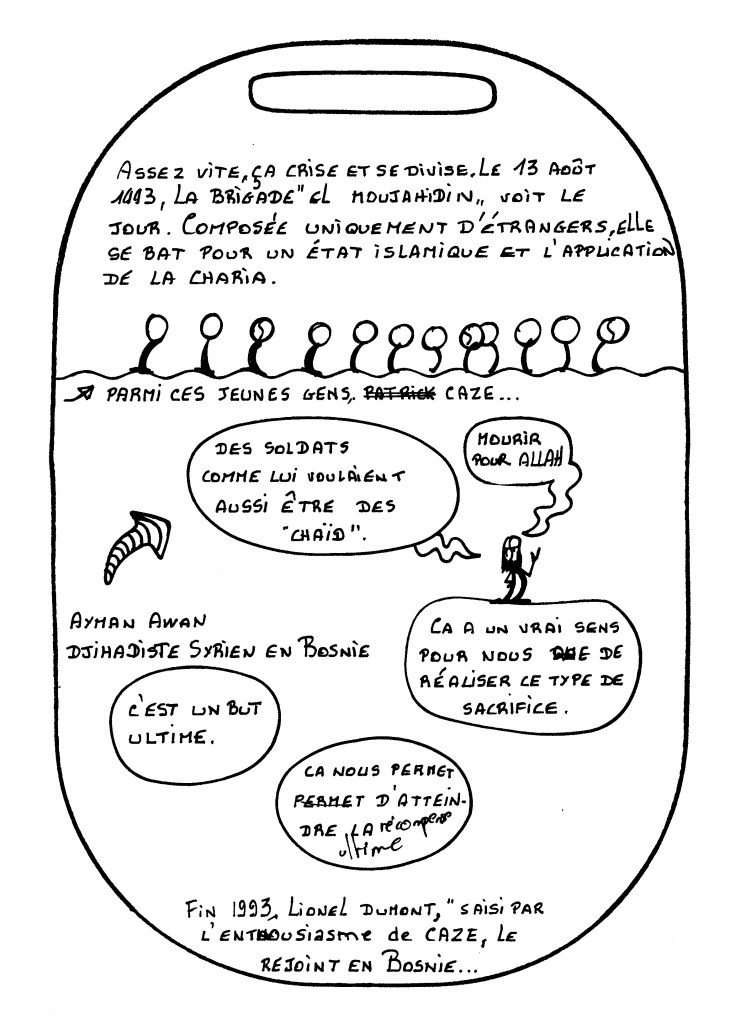 ASSEZ VITE, ÇA CRISE ET SE DIVISE. LE 13 AOÛT
1993, LA BRIGADE "EL MOUJAHIDIN" VOIT LE
JOUR. COMPOSÉE UNIQUEMENT D'ÉTRANGERS, ELLE
SE BAT POUR UN ÉTAT ISLAMIQUE ET L'APPLICATION
DE LA CHARIA.
PARMI CES JEUNES GENS, PATRICK CAZE...
DES SOLDATS
COMME LUI VOULAIENT
AUSSI ÊTRE DES
"CHAÏD".
MOURIR
POUR ALLAH
AYMAN AWAN
DJIHADISTE SYRIEN EN BOSNIE
ÇA A UN VRAI SENS
POUR NOUS DE
RÉALISER CE TYPE DE
SACRIFICE.
C'EST UN BUT
ULTIME.
CA NOUS PERMET
PERMET D'ATTEIN-
DRE LA récompense
ultime
FIN 1993, LIONEL DUMONT, "SAISI PAR
L'ENTHOUSIASME de CAZE, LE
REJOINT EN BOSNIE...